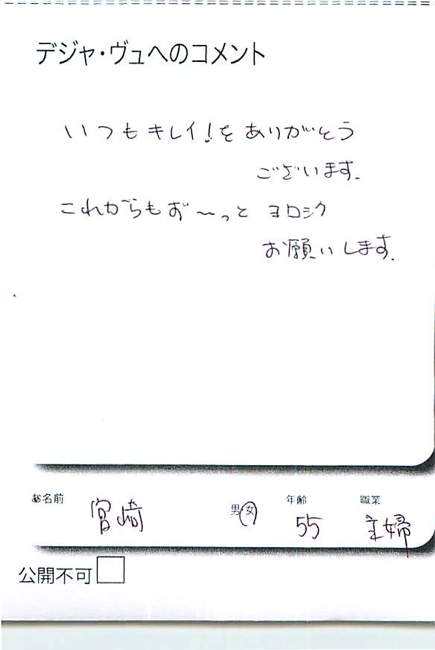 デジャ・ヴュへのコメント
いつもキレイ!をありがとう
ございます.
これからもず〜っと ヨロシク
お願いします.
お名前 宮崎 男・女 年齢 55 職業 主婦
公開不可